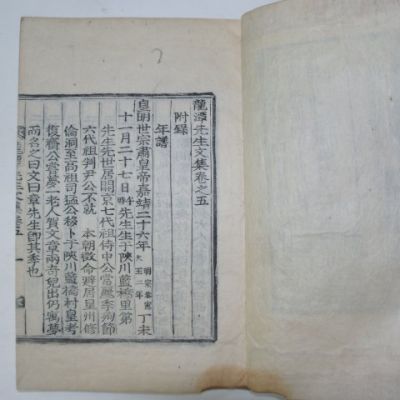 龍潭先生文集卷之五
附錄
年譜
皇明世宗肅皇帝嘉靖二十六年 明宗 大王二年 丁未
十一月二十七日 午時 先生生于陜川藍橋里第
先生先世居開京七代祖侍中公當麗季殉節
六代祖判尹公不就 本朝徵命
倫洞至高祖司猛公移卜于陜川藍橋村皇考
復齋公嘗夢一老人質文章兩者兒出仍
而名之曰文曰章先生卽其季也
先生文集卷五 一